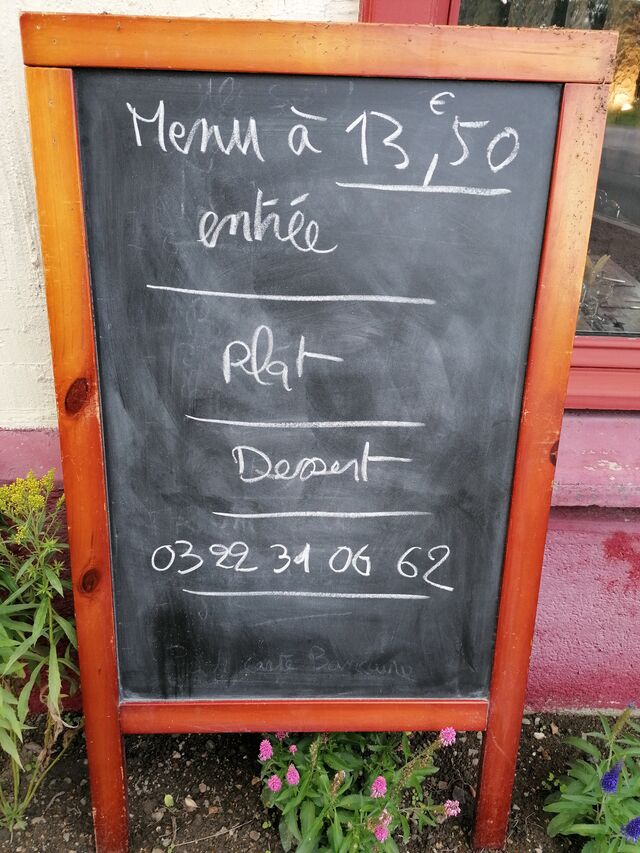 Menu à 13,€50
entrée
Plat
Dessert
03 22 31 06 62
carte Bancaire